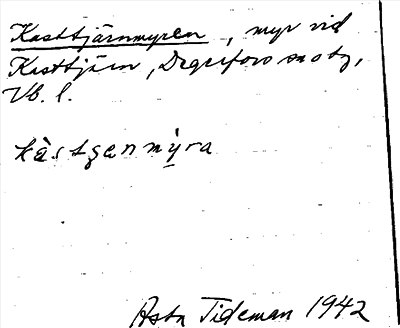 Kasttjärnmyren, myr vid
Kasttjärn, Degerfors sn o tg,
Vb. l.
kàstʒenmỳra
Asta Tideman 1942